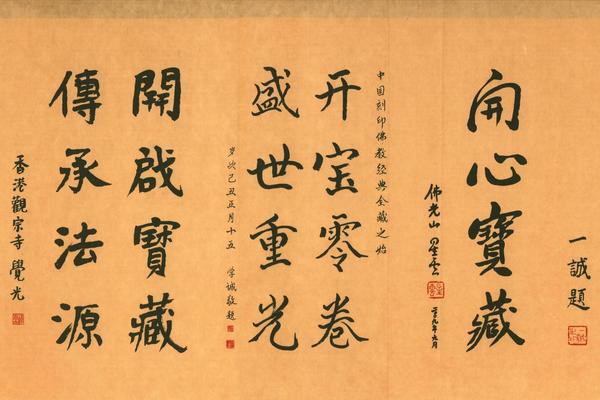 一誠題
開心寶藏
佛光山 星雲
二〇〇九年九月
中国刻印佛教经典全藏之始
开宝零卷
盛世重光
岁次己丑正月十五 学诚敬题
開啟寶藏
傳承法源
香港觀宗寺 覺光